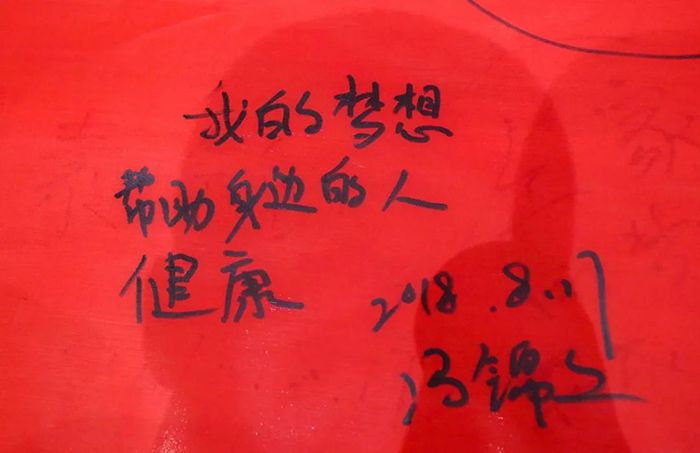 我的梦想
帮助身边的人
健康
2018.8.17
冯锦